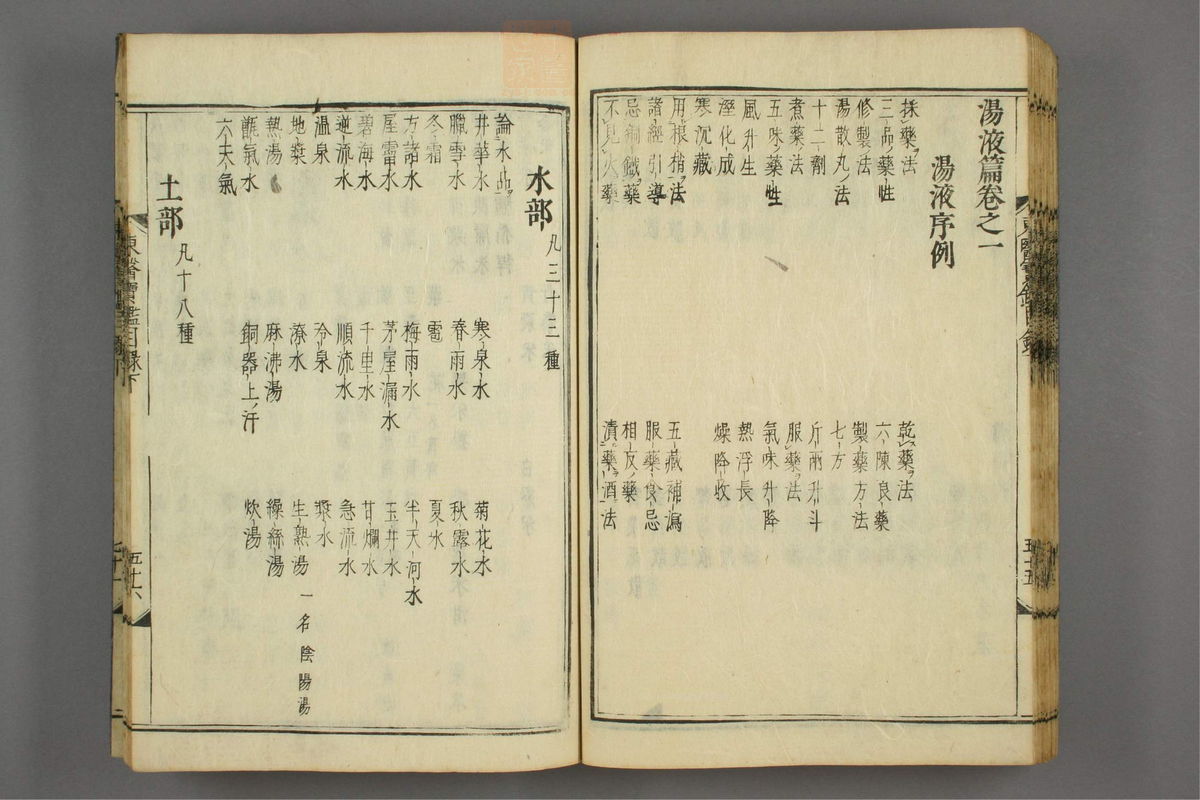 湯液篇卷之一
湯液序例
採藥法 乾藥法
三品藥性 六陳良藥
修製法 製藥方法
湯散丸ノ法 七方
十二劑 斤兩升斗
煮藥法 服藥法
五味藥性 氣味升降
風升生 熱浮長
溼化成 燥降收
寒沉藏
用根梢法 五藏補瀉
諸經引導 服藥食忌
忌銅鐵藥 相反藥
不見火藥 漬藥酒法
水部 凡三十三種
論水品
井華水 寒泉水 菊花水
臘雪水 春雨水 秋露水
冬霜 雹 夏氷
方諸水 梅雨水 半天河水
屋霤水 茅屋漏水 玉井水
碧海水 千里水 甘爛水
逆流水 順流水 急流水
温泉 冷泉 漿水
地漿 潦水 生熟湯 一名陰陽湯
熱湯 麻沸湯 繰絲湯
甑氣水 銅器上ノ汗 炊湯
六天氣
土部 凡十八種
東醫寶鑑目錄下 五十六